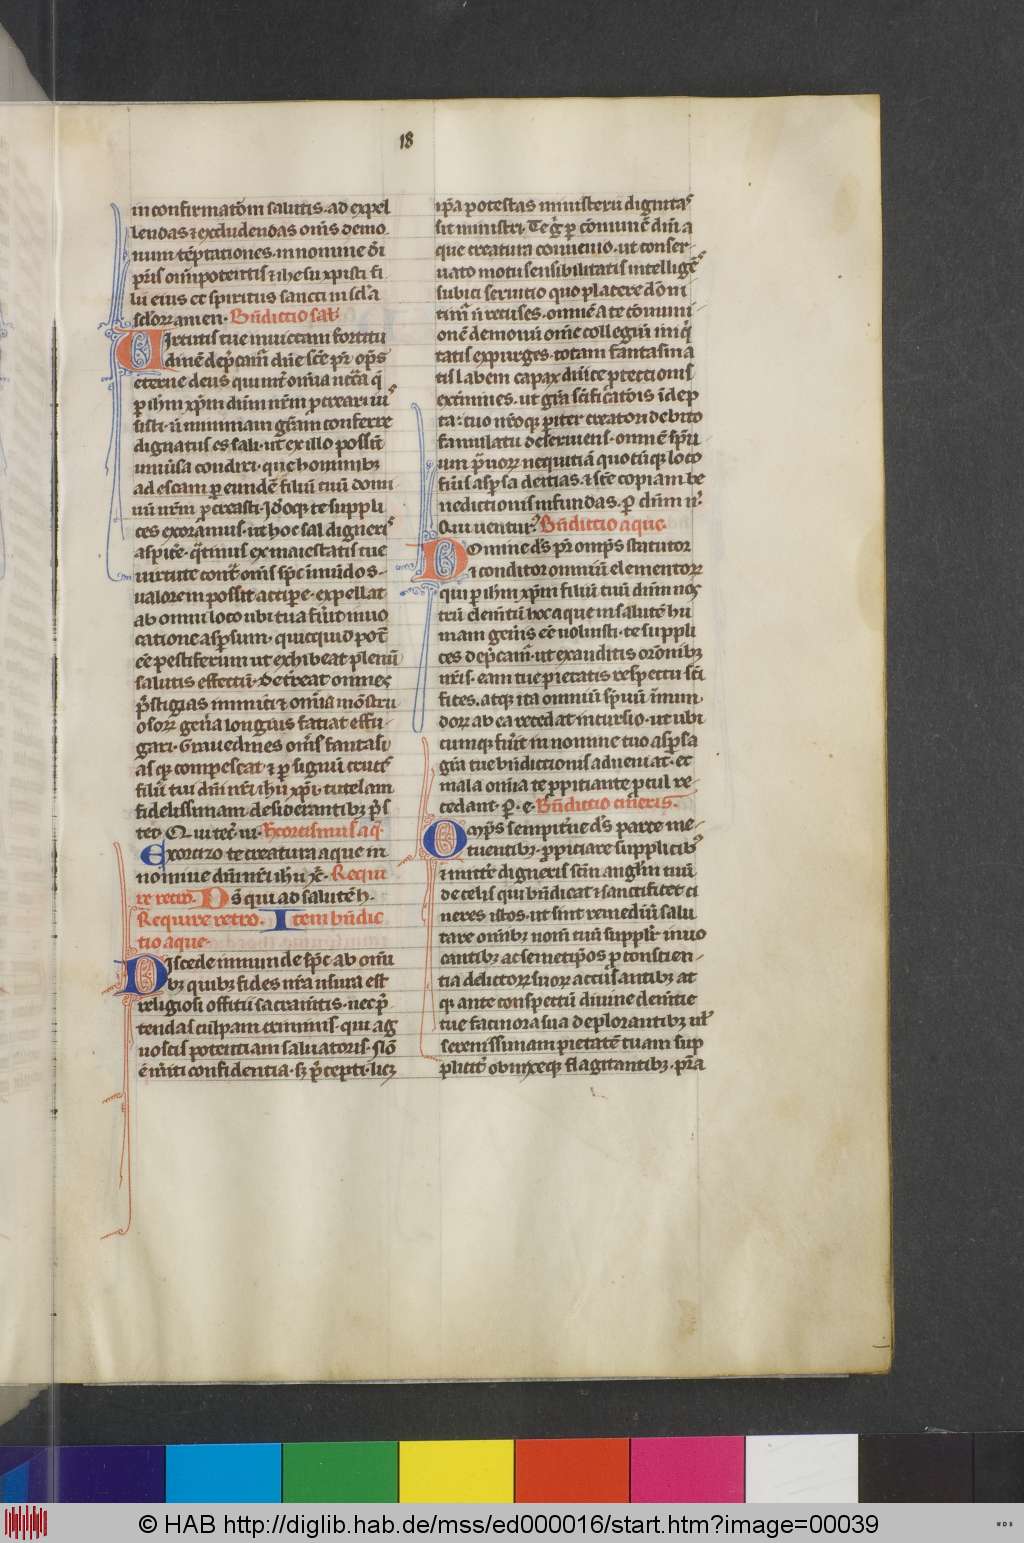 18
in confirmatōm salutis. ad expel
lendas ⁊ excludendas om̄s demo
num tēptationes. in nomine dīī
pr̄is om̄ipotentis ⁊ ihesu xpisti fi
lii eius et spiritus sancti in sc̄la
sc̄lorꝝ amen. Bn̄dictio sal'.
Uirtutis tue inuictam fortitu
dinē dep̄cam̄ dn̄e sc̄e pr̄ op̄s
eterne deus qui int̄ om̄ia
ꝑ ihm̄ xp̄m dn̄m nr̄m ꝓcreari ius
sisti. n̄ minimam gr̄am conferre
dignatus es sali. ut ex illo possīt
uniūsa condiri. que hominibꝫ
ad escam ꝑ eundē filiū tuū domi
nū nr̄m ꝓcreasti. Idoqꝫ te suppli
ces exoramus. ut hoc sal digneris
aspice. q̄tinus ex maiestatis tue
uirtute cont̄ om̄s sp̄c īmūdos
ualorem possit accipe. expellat
ab omni loco ubi tua fūit inuo
catione asp̄sum. quicquid pot̄
eē pestiferum ut exhibeat plenū
salutis effectū. Detreat omnes
p̄stigias inimici ⁊ om̄ia mōstru
osorꝝ gen̄a longius faciat effu
gari. Grauedines om̄s fantasi
asqꝫ compescat ⁊ ꝑ signū crucis
filii tui dn̄i nr̄i ihū xp̄i. tutelam
fidelissimam desiderantibꝫ p̄s
tet. Q̄ uitec' ui. Exorcismus aq̄.
Exorcizo te creatura aque in
nomine dn̄i nr̄i ihū xp̄. Requi
re retro. Ds̄ qui ad salutē h.
Require retro. Item bn̄dic
tio aque.
Discede inmunde sp̄c ab om̄i
bꝫ quibꝫ fides nr̄a usura est
religiosi officii sacram̄tis. nec p̄
tendas culpam criminis. qui ag
noscis potentiam saluatoris. Nō
ē īmīti confidentia. sꝫ p̄cepti. licꝫ
ip̄a potestas ministerii dignitas
sit ministri. Te ḡ ꝑ cōmunē dn̄i a
que creatura conuenio. ut conser
uato motu sensibilitatis intelligēs
subici seruitio quo placere dōni
tim̄ n̄ recuses. omnē a te cōmuni
onē demonū om̄e collegiū iniq̄
tatis expurges. totam fantasma
tis labem capax diu̅ie ꝓtectionis
extinnies. ut gr̄a sc̄ificatōis īdep
ta. tuo nr̄oqꝫ ꝑiter creatori debito
famulatu deseruiens. omnē sp̄u
um p̄uorꝝ nequitiā quocūqꝫ loco
fūis asp̄sa deicias. ⁊ sc̄e copiam be
nedictionis infundas. ꝑ dn̄m n̄.
Q̄ui uentur'. Bn̄dictio aque
Domine ds̄ pr̄ omp̄s statutor
⁊ conditor omniū elementorꝝ
qui ꝑ ihm̄ xp̄m filiū tuū dn̄m nos
trū elem̄tū hoc aque in salutē hu
mani gen̄is eē uoluisti. te suppli
ces dep̄cam̄. ut exauditis orōnibꝫ
nr̄is. eam tue pietatis respectu sc̄i
fices. atqꝫ ita omniū sp̄uū īmun
dorꝝ ab ea recedat incursio. ut ubi
cumqꝫ fūit in nomine tuo asp̄sa
gr̄a tue bn̄dictionis adueniat. et
mala om̄ia te ꝓpitiante ꝓcul re
cedant. ꝑ. e. Bn̄dictio cin̄eris.
Omp̄s sempit̄ne ds̄ parce me
tuentibꝫ. ꝓpitiare supplicibꝫ
⁊ mitte digneris sc̄m angl̄m tuū
de celis qui bn̄dicat ⁊ sanctificet ci
neres istos. ut sint remediū salu
tare om̄ibꝫ nom̄ tuū supplīr inuo
cantibꝫ ac semetip̄os ꝓ conscien
tia delictorꝝ suorꝝ accusantibꝫ at
qꝫ ante conspectū diuine clem̄tie
tue facinora sua deplorantibꝫ ul'
serenissimam pietatē tuam sup
plicit̄ obnixeqꝫ flagitantibꝫ. pr̄a
© HAB http://diglib.hab.de/mss/ed000016/start.htm?image=00039